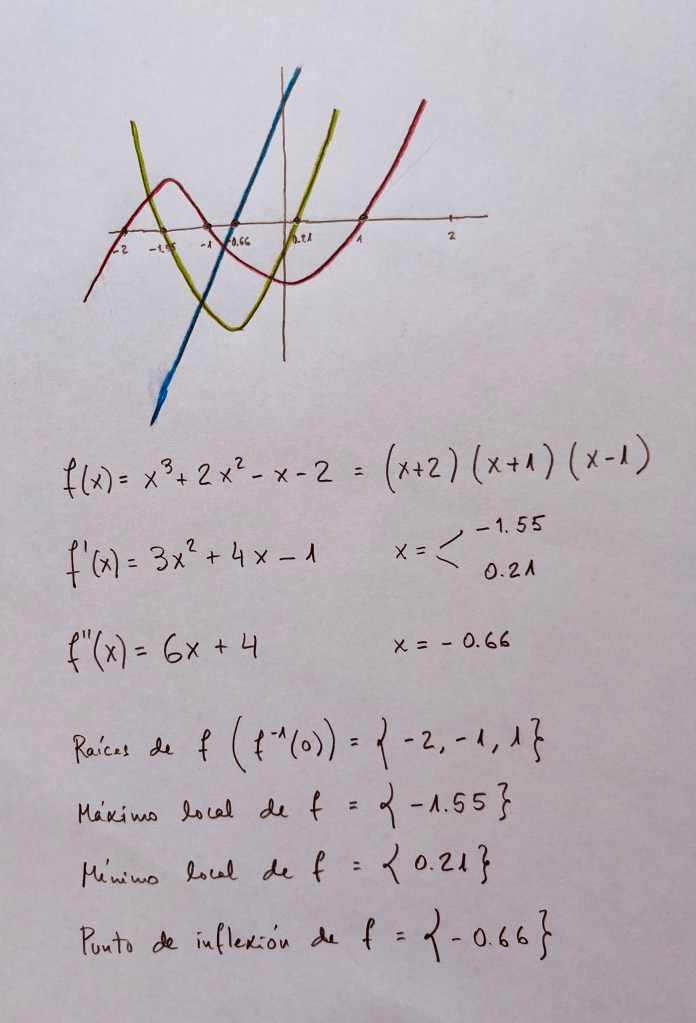 -2 -1.55 -1 -0.66 0.21 1 2
f(x) = x³ + 2x² - x - 2 = (x+2) (x+1) (x-1)
f'(x) = 3x² + 4x - 1 x = < -1.55
0.21
f''(x) = 6x + 4 x = - 0.66
Raíces de f (f⁻¹(0)) = { -2, -1, 1 }
Máximo local de f = { -1.55 }
Mínimo local de f = { 0.21 }
Punto de inflexión de f = { - 0.66 }